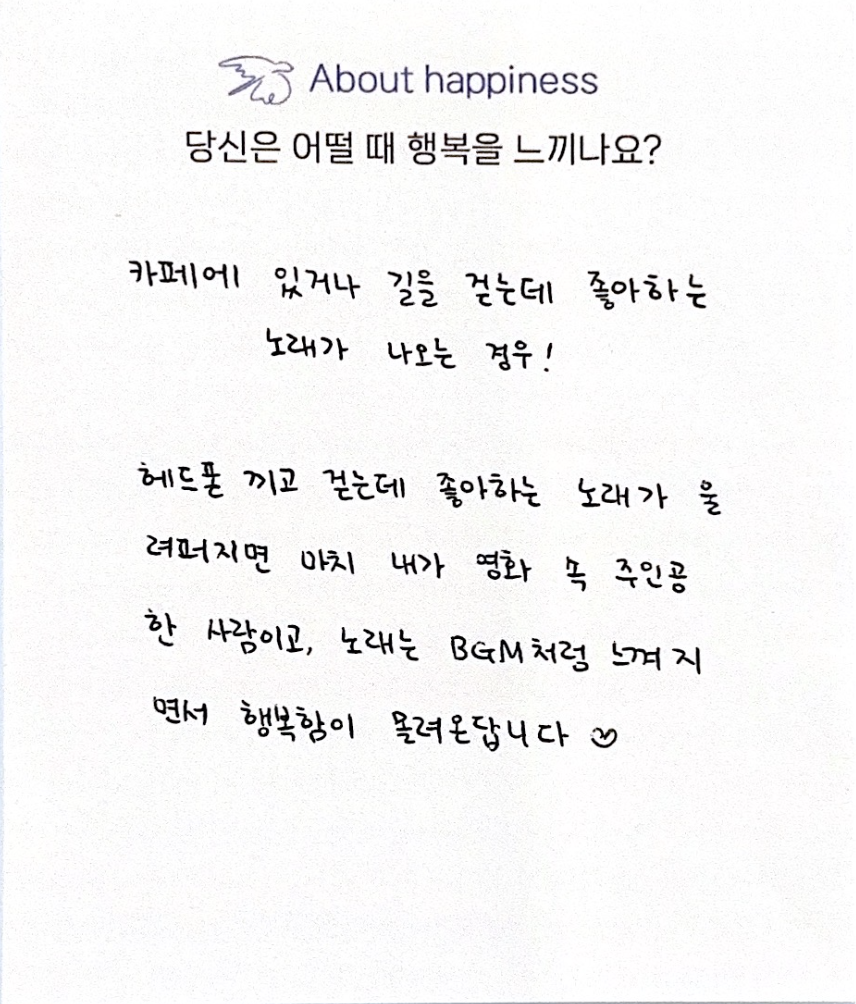 About happiness
당신은 어떨 때 행복을 느끼나요?
카페에 있거나 길을 걷는데 좋아하는
노래가 나오는 경우!
헤드폰 끼고 걷는데 좋아하는 노래가 울
려퍼지면 마치 내가 영화 속 주인공
한 사람이고, 노래는 BGM처럼 느껴지
면서 행복함이 몰려온답니다 ♡